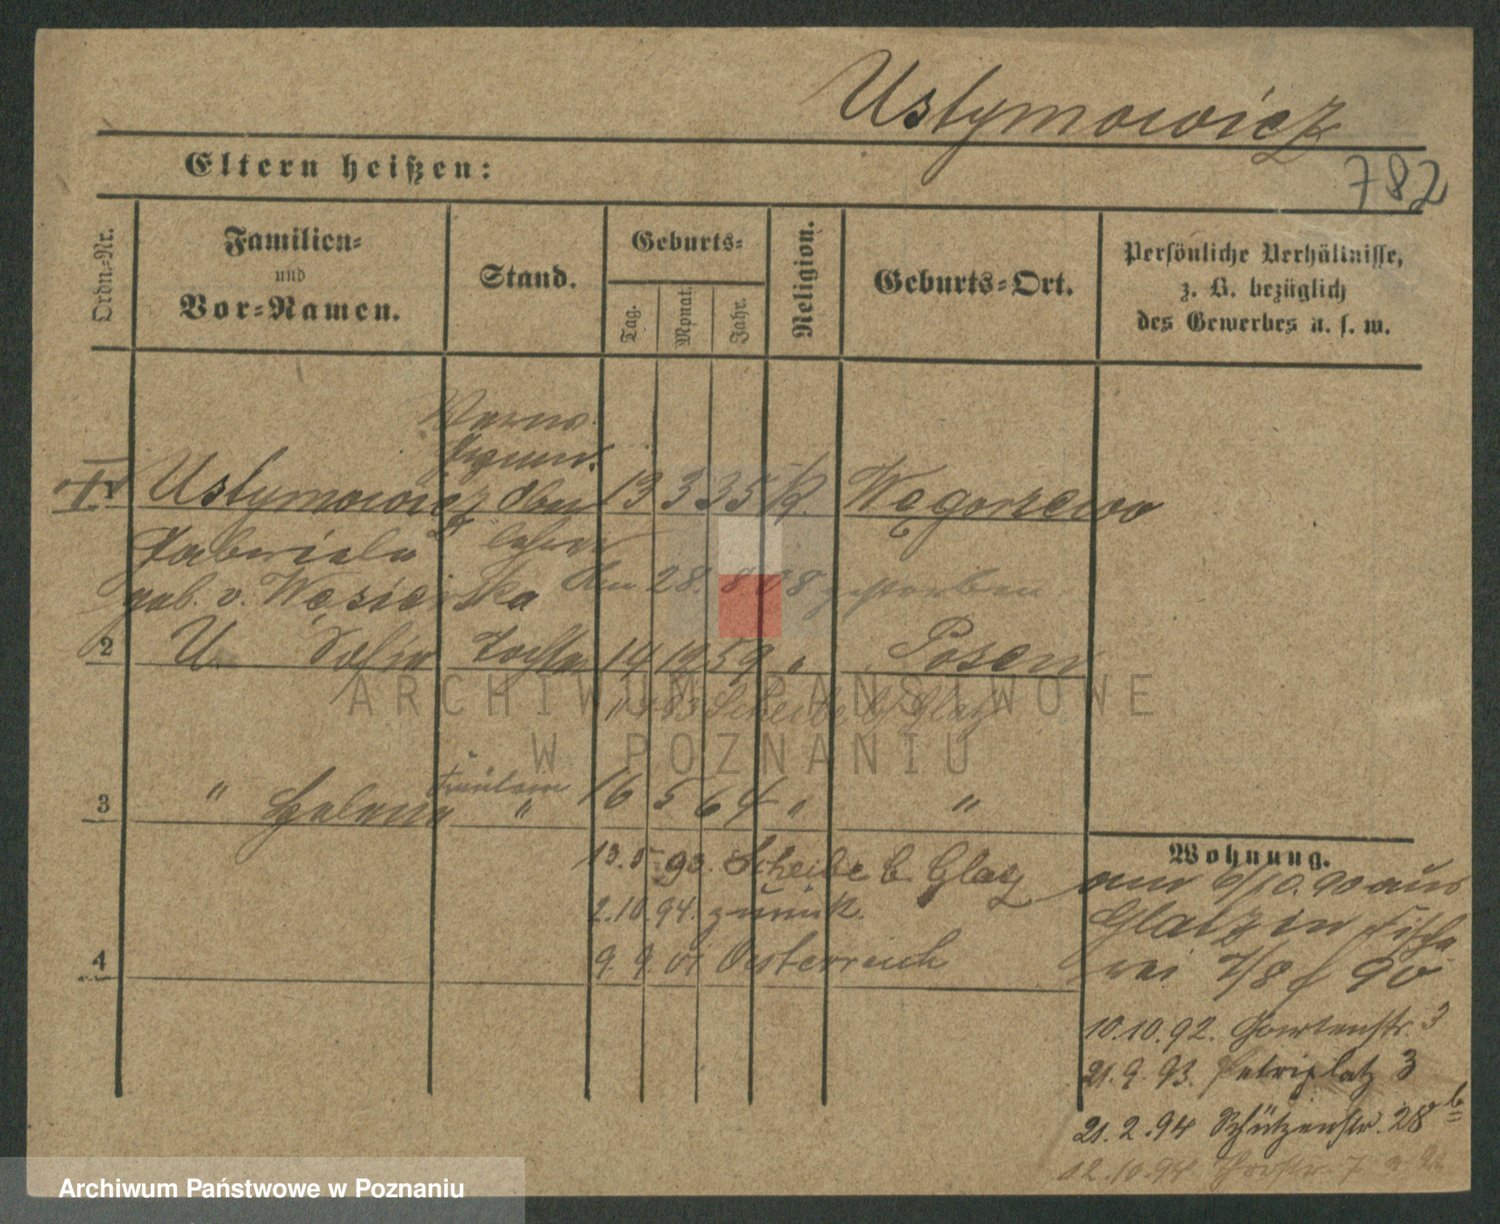 Ustymowicz
782
Eltern heißen:
Ordn.-Nr.
Familien-
und
Vor-Namen.
Stand.
Geburts-
Tag.
Monat.
Jahr.
Religion.
Geburts-Ort.
Persönliche Verhältnisse,
z. B. bezüglich
des Gewerbes u. s. w.
1 Ustymowicz 13 3 35 K. Węgorzewo
Gabriela
geb. v. Węsierska am 28. 8. 08 gestorben
2 U. Sofia Tochter 14 10 59 " Posen
Scheibe b Glatz
3 " Helena Fräulein " 16 5 64 " "
13.5.93. Scheibe b Glatz
2.10.94. zurück.
4 9. 9. 01 Oesterreich
Wohnung.
am 6/10.90 aus
Glatz in Fische
rei 7/8 f 90
10.10.92. Gartenstr. 3
21.9.93. Petriplatz 3
21.2.94 Schützenstr. 28 b
12.10.94. 7
ARCHIWUM PAŃSTWOWE
W POZNANIU
Archiwum Państwowe w Poznaniu